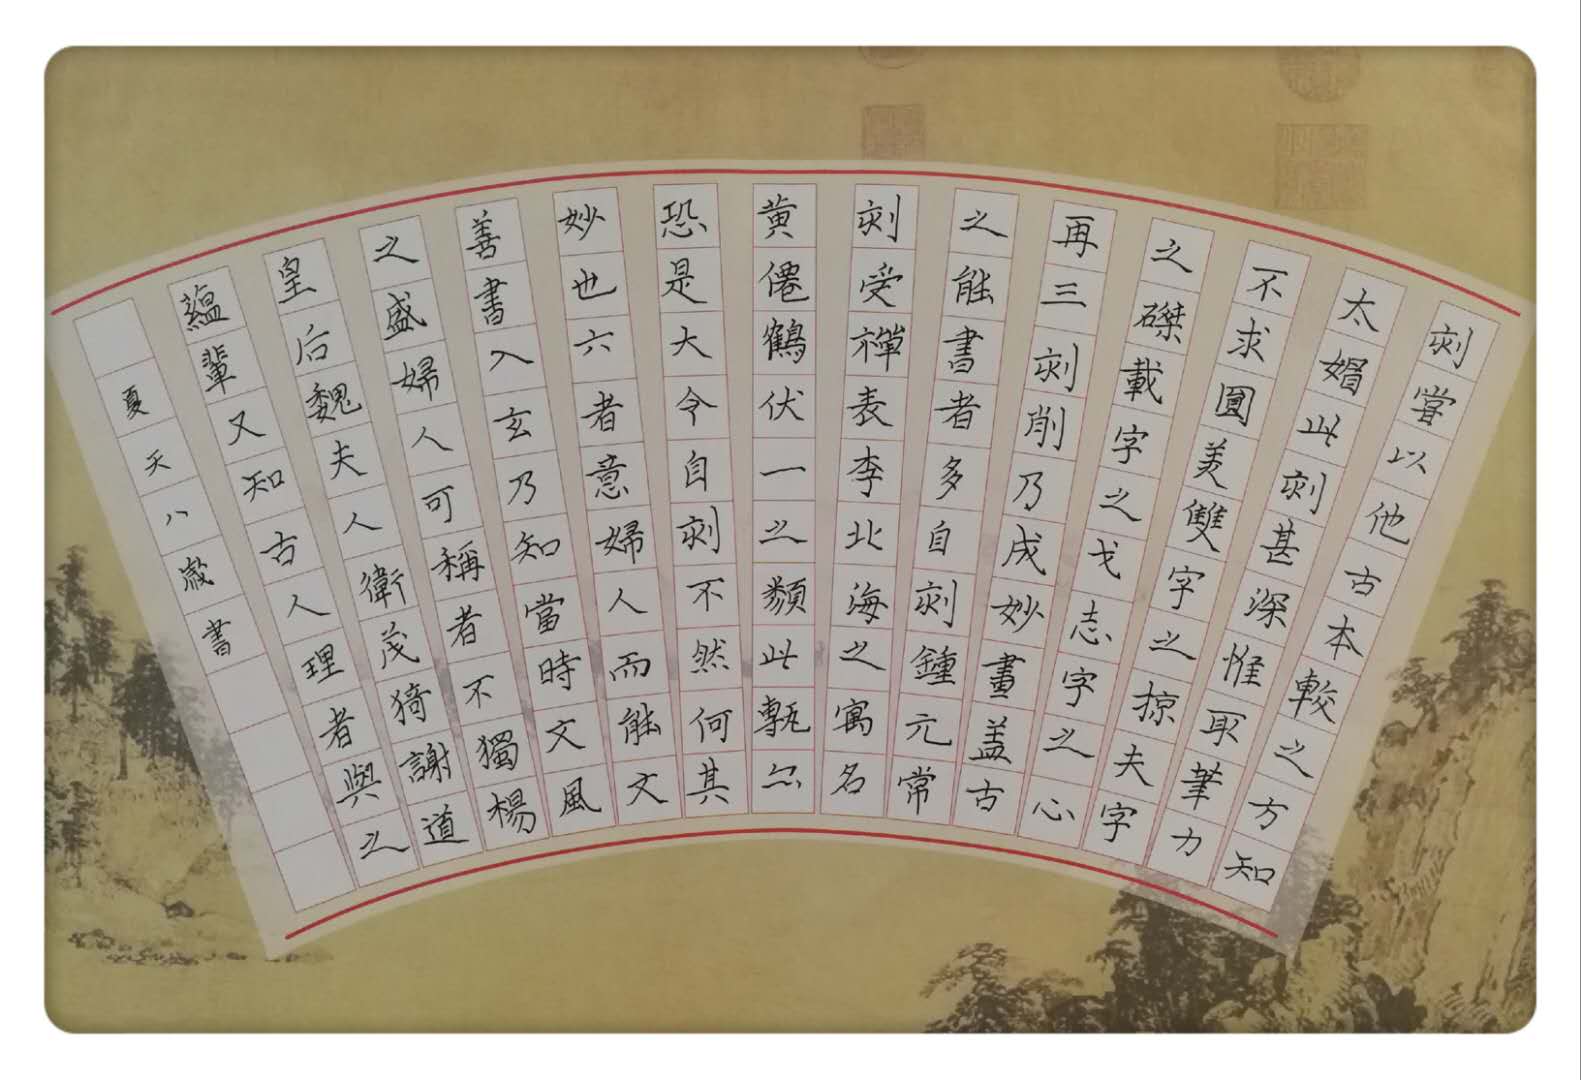 刻嘗以他古本較之方知
太媚此刻甚深惟取筆力
不求圓美雙字之掠夫字
之磔載字之戈志字之心
再三刻削乃成妙畫盖古
之能書者多自刻鍾元常
刻受禅表李北海之寓名
黄僊鶴伏一之類此執尔
恐是大令自刻不然何其
妙也六者意婦人而能文
善書入玄乃知當時文風
之盛婦人可稱者不獨楊
皇后魏夫人衛茂猗謝道
藴輩又知古人理者與之
夏天八歳書